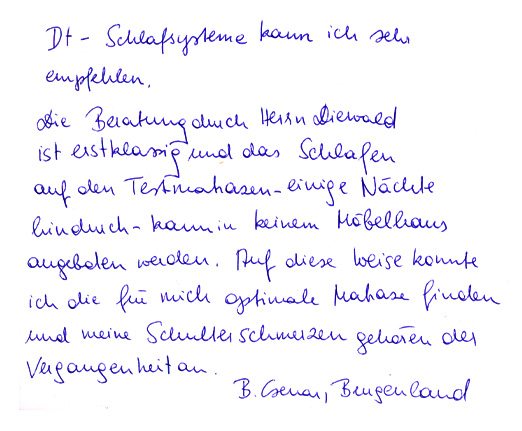 Dt - Schlafsysteme kann ich sehr
empfehlen.
Die Beratung durch Herrn Diewald
ist erstklassig und das Schlafen
auf den Testmatrazen - einige Nächte
hindurch - kann in keinem Möbelhaus
angeboten werden. Auf diese Weise konnte
ich die für mich optimale Matraze finden
und meine Schulterschmerzen gehören der
Vergangenheit an.
B. , Burgenland